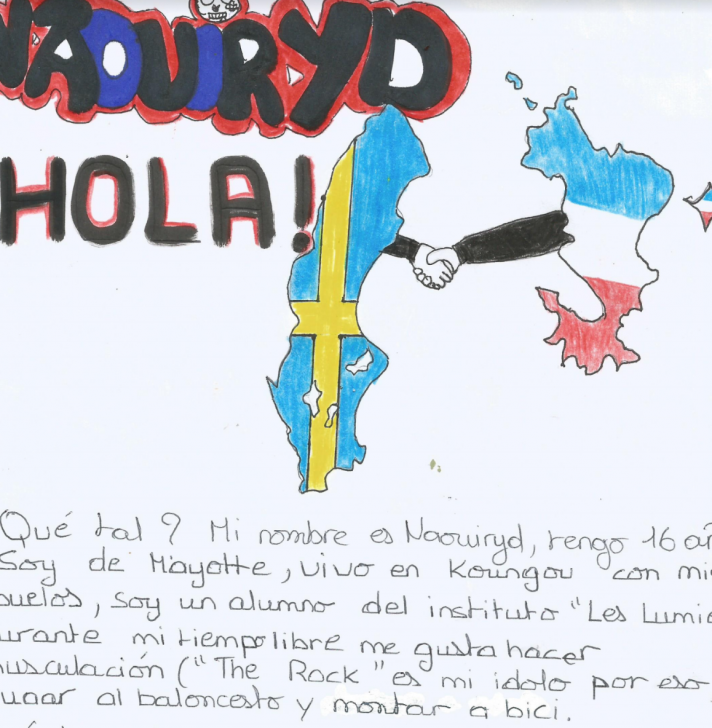 NAOUIRYD
HOLA!
Qué tal? Mi nombre es Naouiryd, tengo 16 añ
Soy de Mayotte, vivo en Koungou con mi
buelos, soy un alumno del instituto "Les Lumiè
urante mi tiempo libre me gusta hacer
musculación ("The Rock" es mi idolo por eso
ugar al baloncesto y montar a bici.